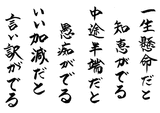 一生懸命だと
知恵がでる
中途半端だと
愚痴がでる
いい加減だと
言い訳がでる